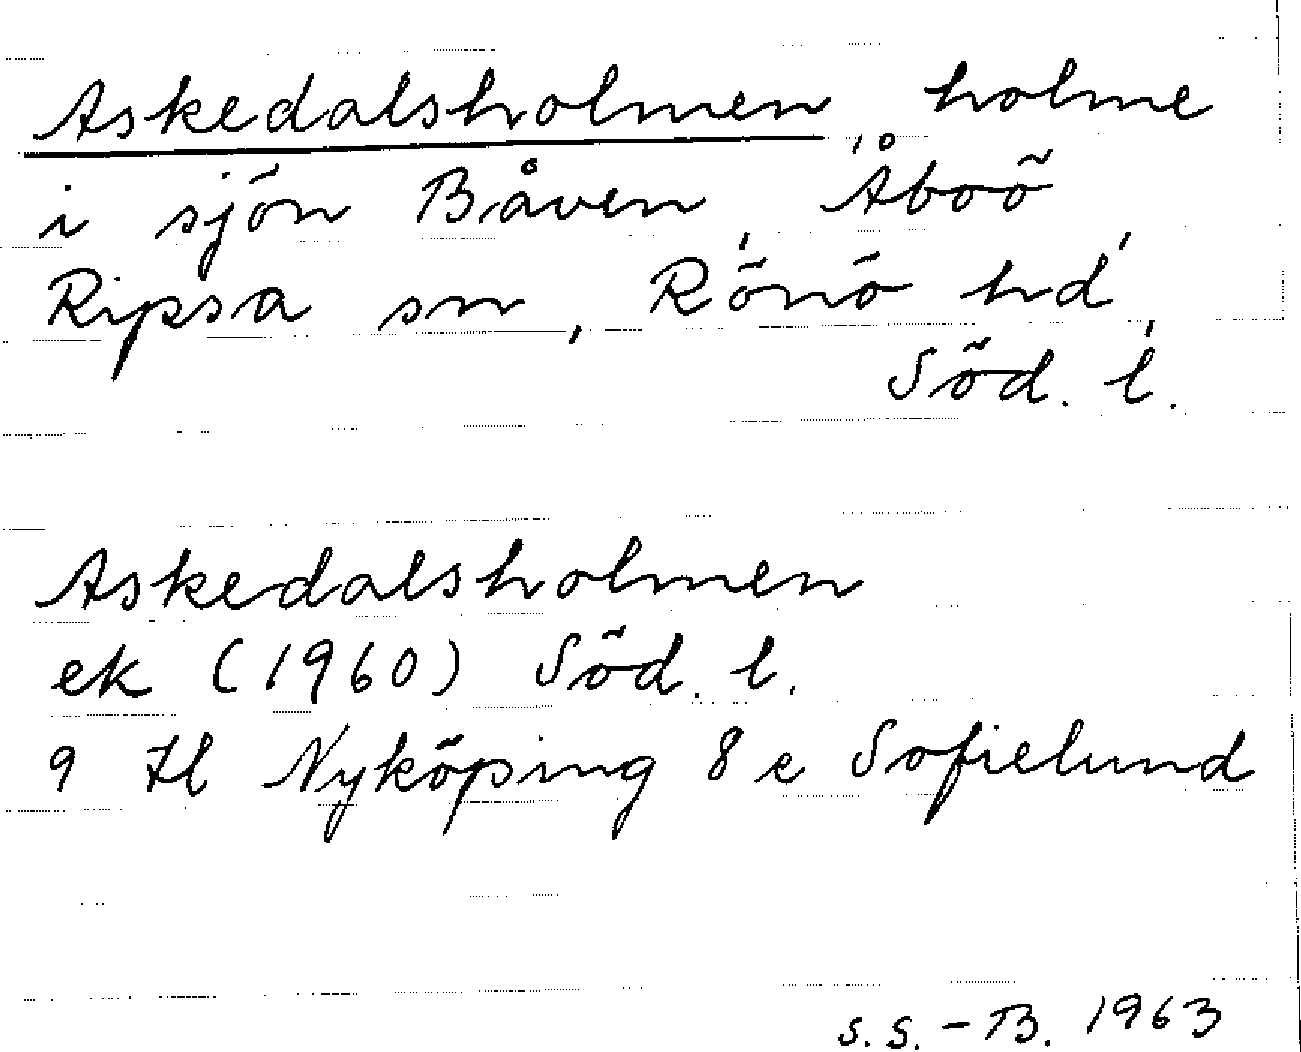 Askedalsholmen, holme
i sjön Båven, Åboö,
Ripsa sn, Rönö hd,
Söd. l.
Askedalsholmen
ek (1960) Söd. l.
9 Hl Nyköping 8 e Sofielund
S. S. - B. 1963